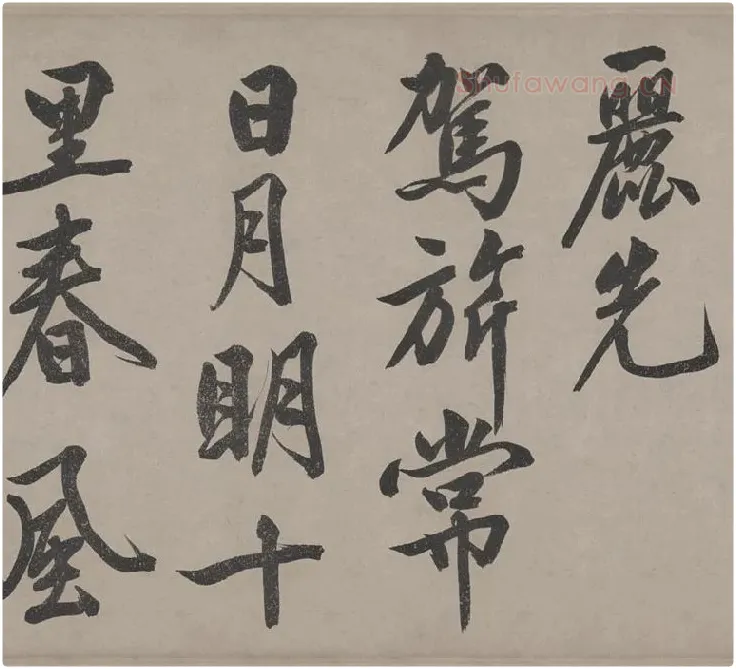 麗先
駕旂常
日月明十
里春風
Shufawang.cn